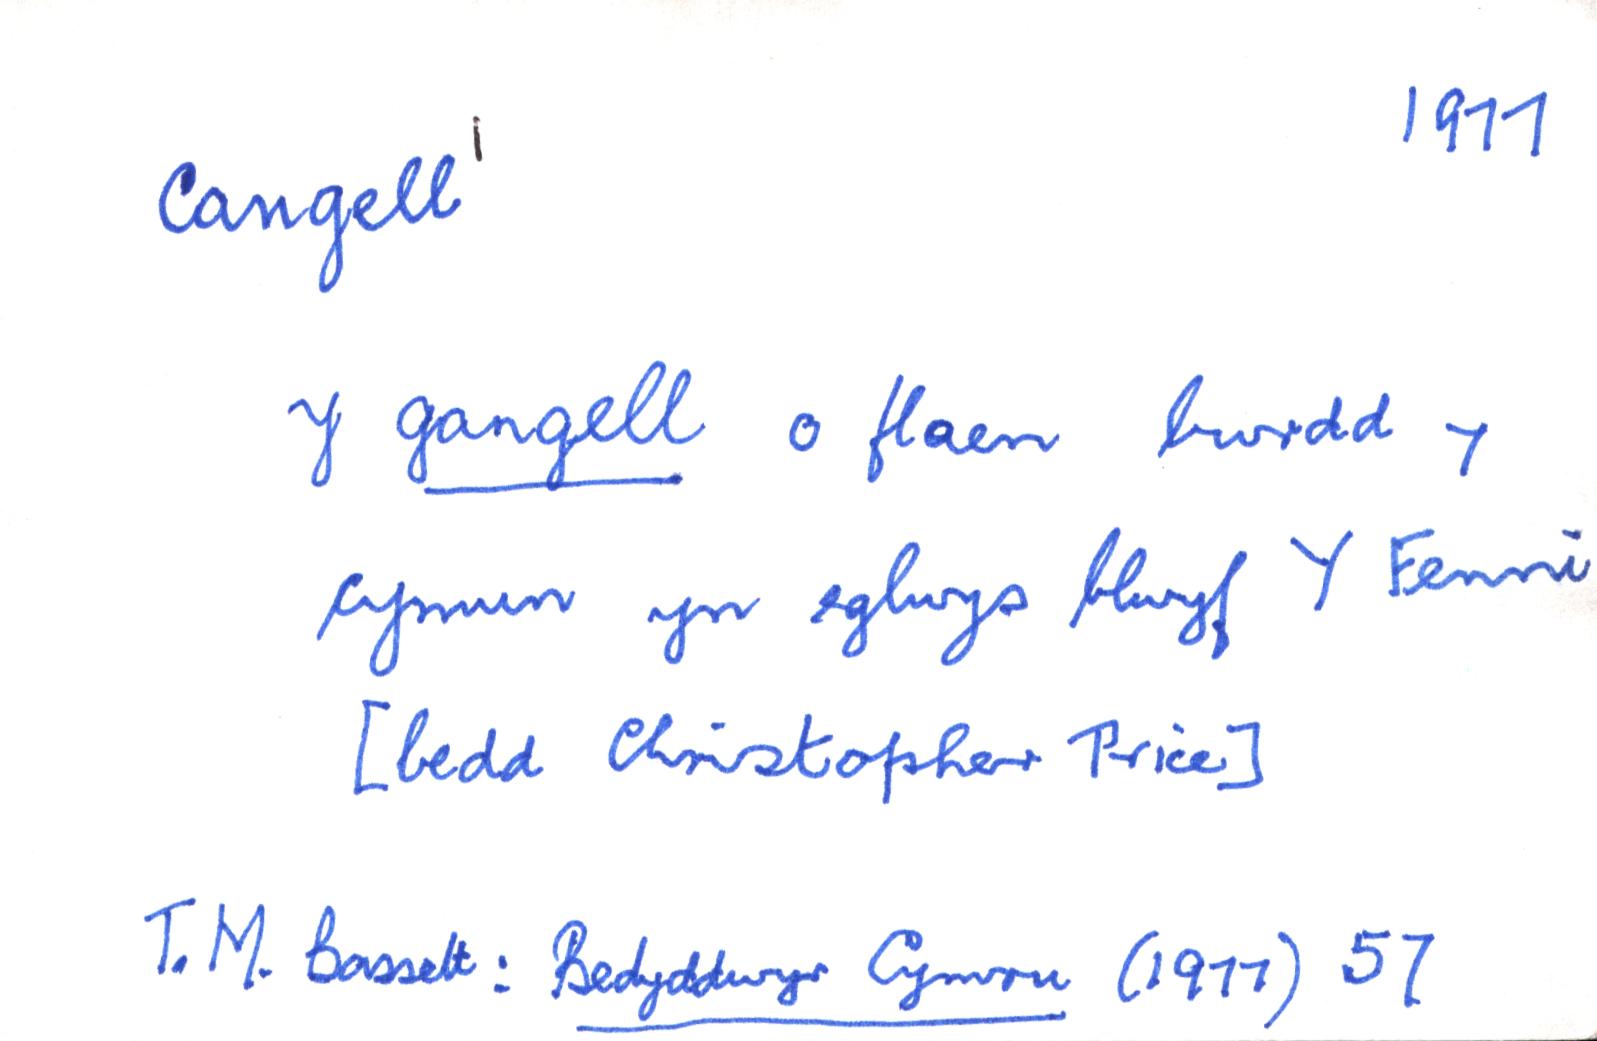 1977
Cangell¹
y gangell o flaen bwrdd y
cymun yn eglwys blwyf Y Fenni
[bedd Christopher Price]
T. M. Bassett: Bedyddwyr Cymru (1977) 57